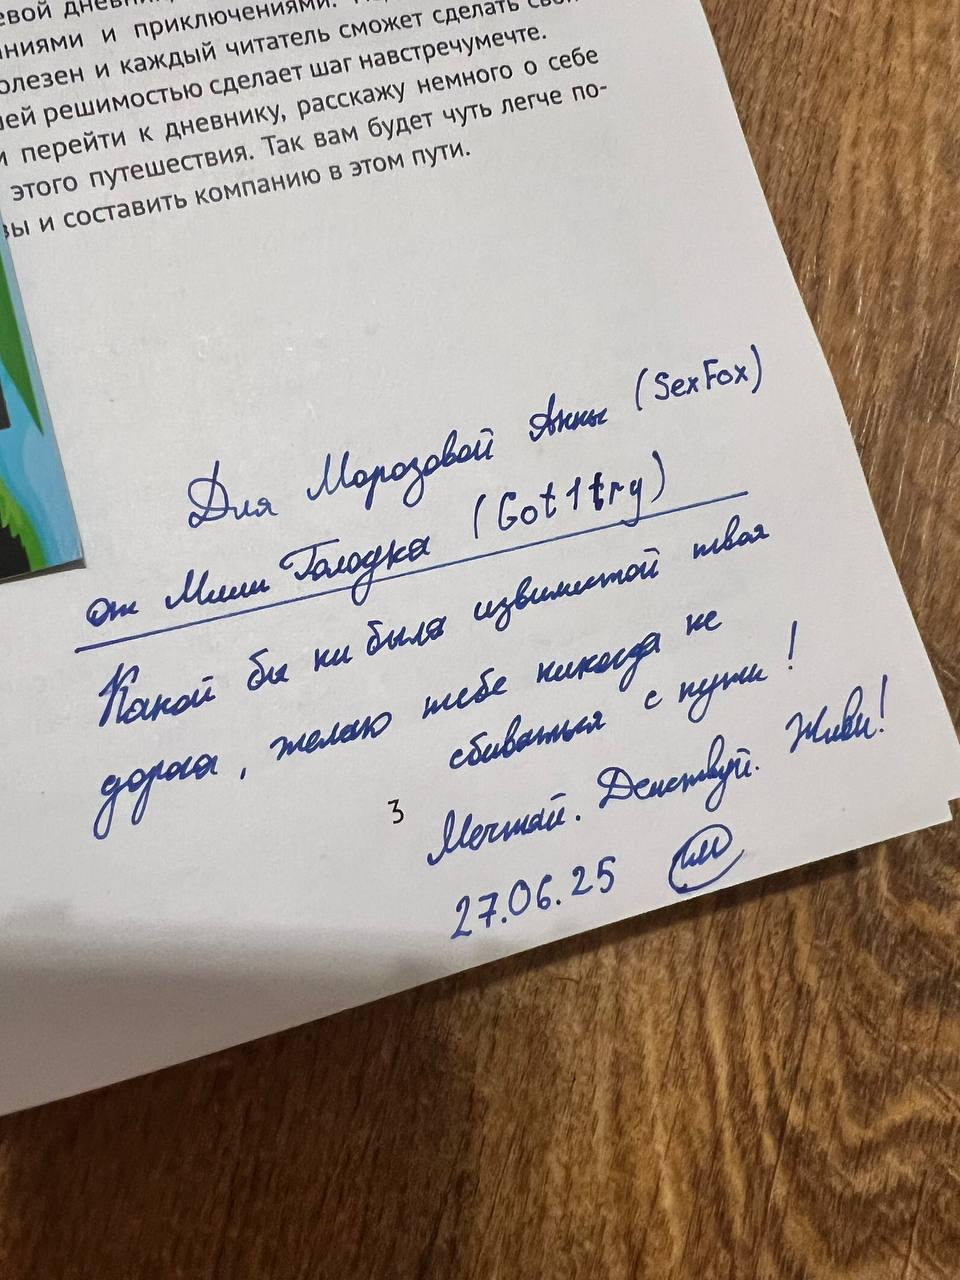 дневни
ниями и приключениями.
олезен и каждый читатель сможет сделать
ей решимостью сделает шаг навстречумечте.
и перейти к дневнику, расскажу немного о себе
этого путешествия. Так вам будет чуть легче по-
зы и составить компанию в этом пути.
Для Морозовой Анны (SexFox)
от Миши Голодка (Got1try)
Какой бы ни была извилистой твоя
дорога, желаю тебе никогда не
сбиваться с пути!
3
Мечтай. Действуй. Живи!
27.06.25